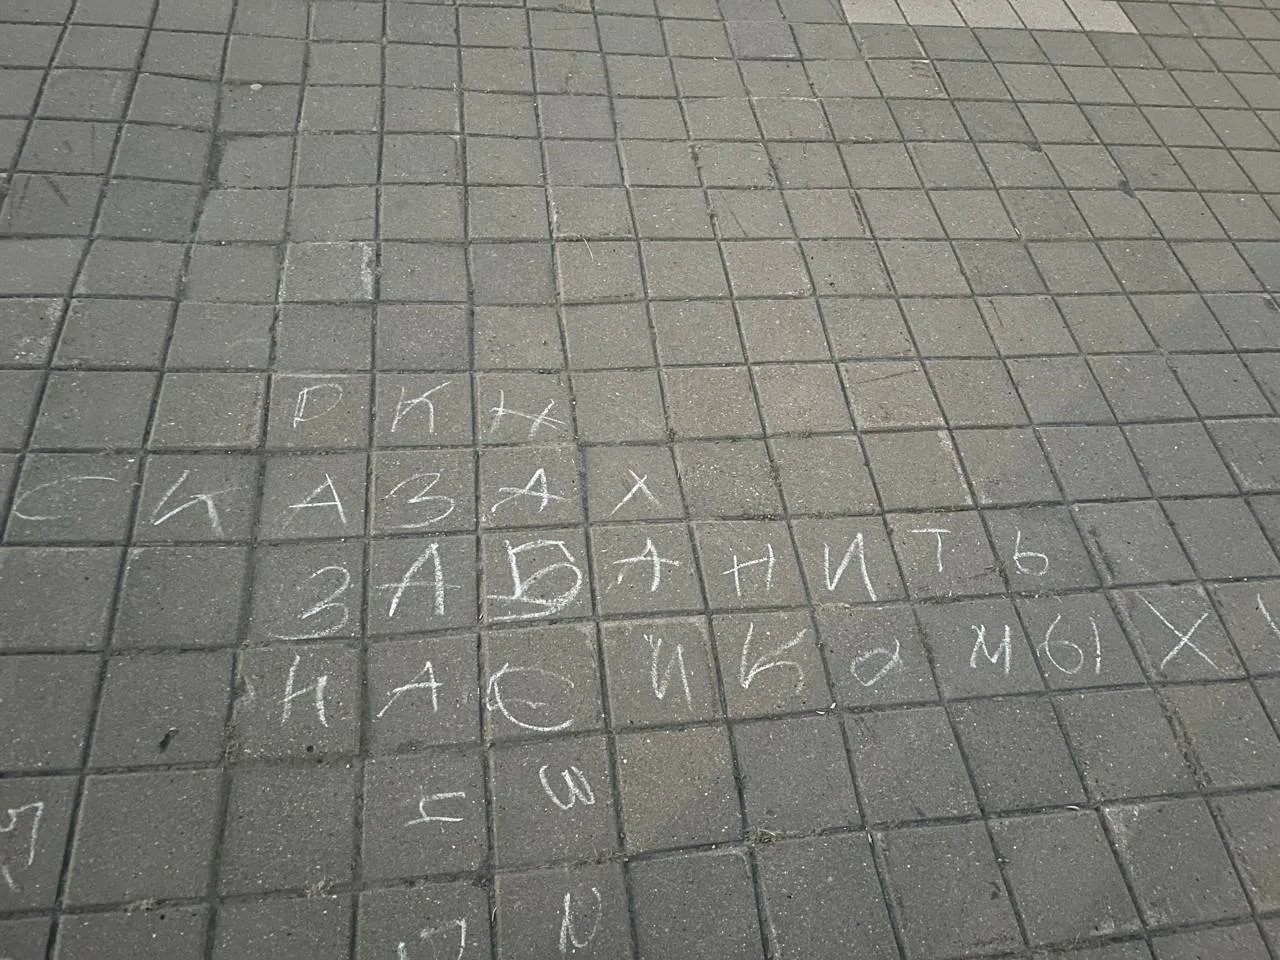 РКН
СКАЗАХ
ЗАБАНИТЬ
НАСЙКОМЫХ